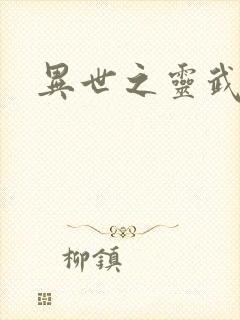 異世之靈武
柳鎮